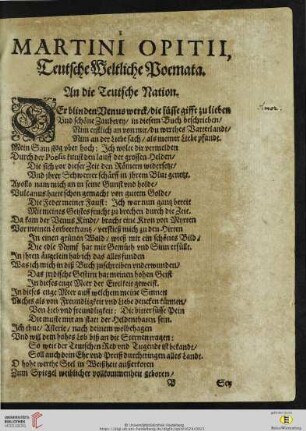 MARTINI OPITII,
Teutsche Weltliche Poemata.
An die Teutsche Nation.
DEr blinden Venus werck/ die süsse gifft zu lieben
Vnd schöne Zauberey/ in diesem Buch beschrieben/
Nim erstlich an von mir/ du werthes Vatterlandt/
Nim an der Liebe sach/ als meiner Liebe pfandt.
Mein Sinn flog vber hoch: Ich wolte dir vermelden
Durch der Poesis kunst den lauff der grossen Helden/
Die sich vor dieser Zeit den Römern widersetzt/
Vnd jhrer Schwerter schärff in jhrem Blut genetzt.
Apollo nam mich an in seine Gunst vnd holde/
Vulcanus hatte schon gemacht von gutem Golde/
Die Feder meiner Faust: Ich war nun gantz bereit
Mit meines Geistes frucht zu brechen durch die Zeit.
Da kam der Venus Kindt/ bracht eine Kron von Myrten
Vor meinen Lorbeerkrantz/ verstieß mich zu den Hirten
In einen grünen Wald/ wieß mir ein schönes Bild/
Die edle Nimf hat mir Gemüth vnd Sinn erfüllt.
In jhren äugelein hab ich das alles funden
Was ich mich in diß Buch zu schreiben vnderwunden/
Das jrrdische Gestirn hat meinen hohen Geist
In dieses enge Meer der Eytelkeit geweist.
In dieses enge Meer auß welchem meine Sinnen
Nichts als von Freundligkeit vnd Liebe dencken können/
Von Lieb vnd freundligkeit: Die bitter süsse Pein
Die muste mir an statt der Heldenthaten sein.
Ich thue/ Asterie/ nach deinem wolbehagen
Vnd wil dein hohes Lob biß an die Sternen tragen:
So weit der Teutschen Red vnd Tugendt ist bekandt/
Soll auch dein Ehr vnd Preiß durchtringen alles Landt.
O hohe werthe Seel in Weißheit außerkoren
Zum Spiegel weiblicher vollkommenheit geboren/
Sey